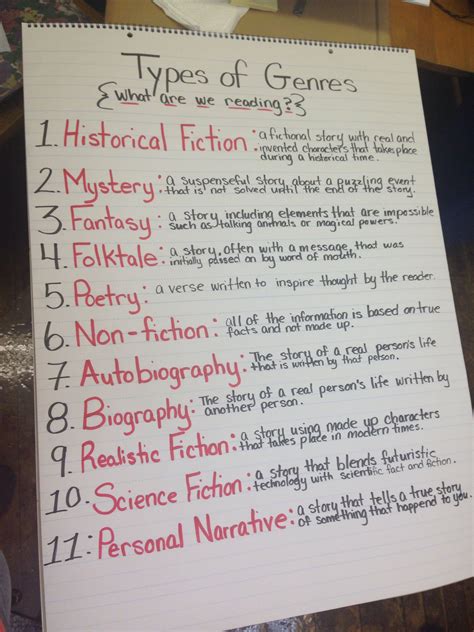 Types of Genres
{What are we reading?}
1. Historical Fiction: a fictional story with real and
invented characters that takes place
during a historical time.
2. Mystery: a suspenseful story about a puzzling event
that is not solved until the end of the story.
3. Fantasy: a story including elements that are impossible
such as talking animals or magical powers.
4. Folktale: a story, often with a message, that was
initially passed on by word of mouth.
5. Poetry: a verse written to inspire thought by the reader.
6. Non-fiction: all of the information is based on true
facts and not made up.
7. Autobiography: The story of a real person's life
that is written by that person.
8. Biography: The story of a real person's life written by
another person.
9. Realistic Fiction: a story using made up characters
that takes place in modern times.
10. Science Fiction: a story that blends futuristic
technology with scientific fact and fiction.
11: Personal Narrative: a story that tells a true story
of something that happend to you.